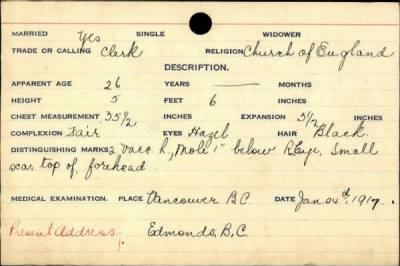 MARRIED Yes SINGLE WIDOWER
TRADE OR CALLING Clerk RELIGION Church of England
DESCRIPTION.
APPARENT AGE 26 YEARS — MONTHS
HEIGHT 5 FEET 6 INCHES
CHEST MEASUREMENT 35 1/2 INCHES EXPANSION 3 1/2 INCHES
COMPLEXION Fair EYES Hazel HAIR Black.
DISTINGUISHING MARKS 2 vacc. L, Mole 1" below R Eye, Small
scar top of forehead.
MEDICAL EXAMINATION. PLACE Vancouver B.C. DATE Jan 24th, 1917.
Present Address. Edmonds, B.C.